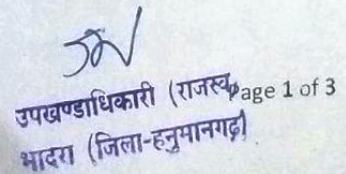 उपखण्डाधिकारी (राजस्व
Page 1 of 3
भादरा (जिला-हनुमानगढ़)